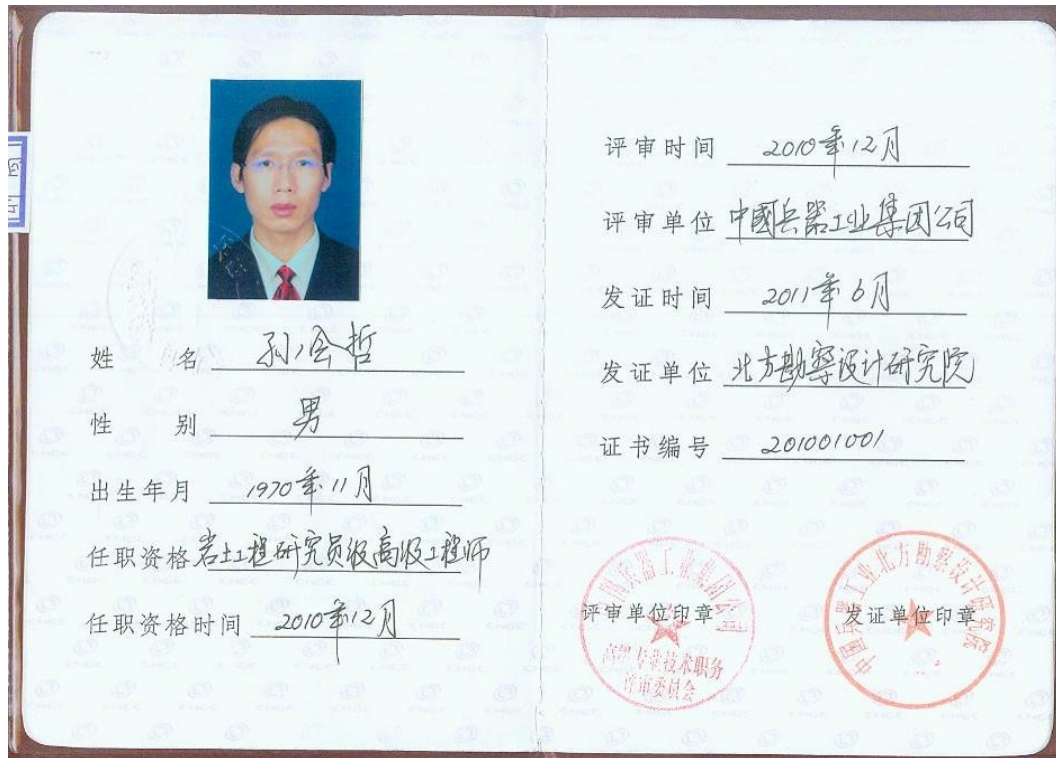 姓 名 孙会哲
性 别 男
出生年月 1970年11月
任职资格 岩土工程研究员级高级工程师
任职资格时间 2010年12月
评审时间 2010年12月
评审单位 中國兵器工业集团公司
发证时间 2011年6月
发证单位 北方勘察设计研究院
证书编号 201001001
中国兵器工业集团公司
评审单位印章
高级专业技术职务
评审委员会
中国兵器工业北方勘察设计研究院
发证单位印章